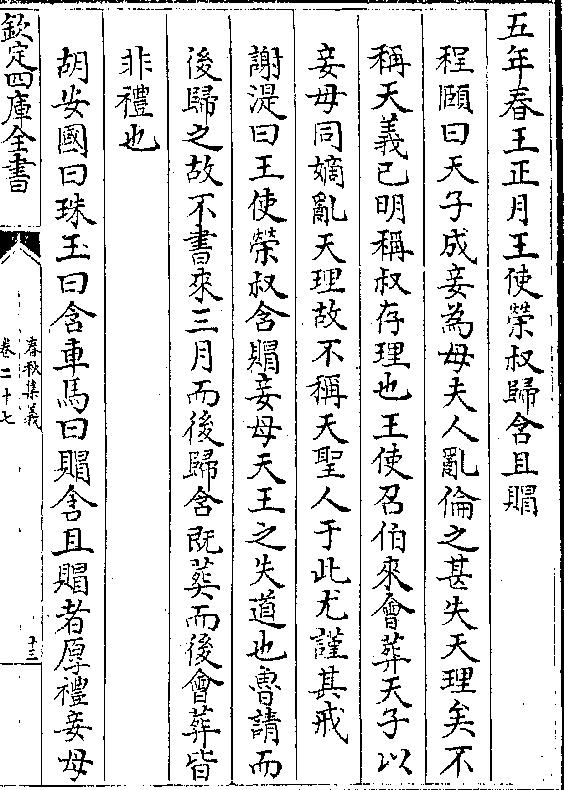 五年春王正月王使榮叔歸含且賵
程頤曰天子成妾為母夫人亂倫之甚失天理矣不
稱天義已明稱叔存理也王使召伯來會葬天子以
妾母同嫡亂天理故不稱天聖人于此尤謹其戒
謝湜曰王使榮叔含賵妾母天王之失道也魯請而
後歸之故不書來三月而後歸含既葬而後會葬皆
非禮也
胡安國曰珠玉曰含車馬曰賵含且賵者厚禮妾母
欽定四庫全書
春秋集義
卷二十七
十三